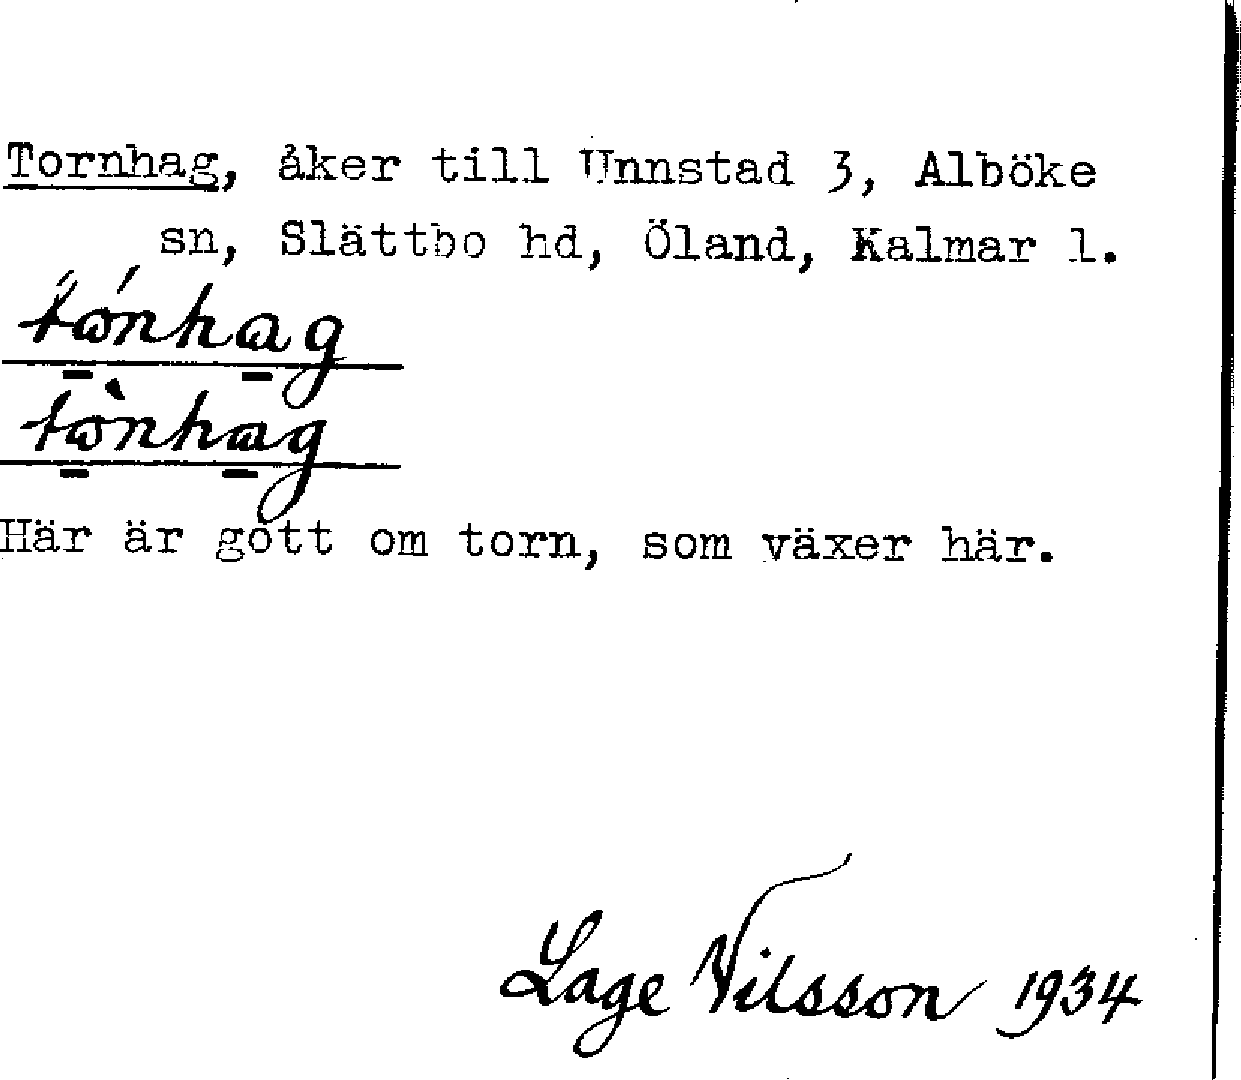 Tornhag, åker till Unnstad 3, Alböke
sn, Slättbo hd, Öland, Kalmar l.
tónhag
tònhag
Här är gott om torn, som växer här.
Lage Nilsson 1934